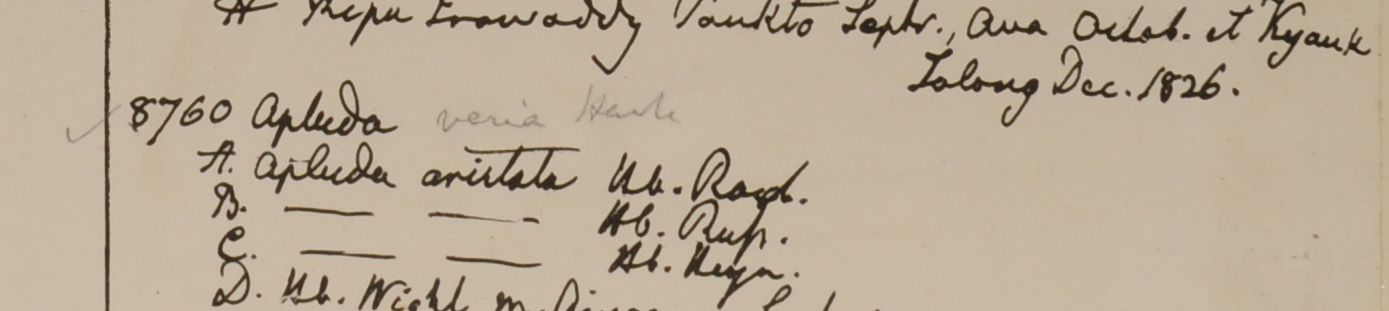 Irawaddy Septr., Ava Octob. et Kyauk
Talong Dec. 1826.
8760 Apluda varia Hack
A. Apluda aristata Hb. Roxb.
B. — — Hb. Russ.
C. — — Hb. Heyn.
D. Hb. Wight